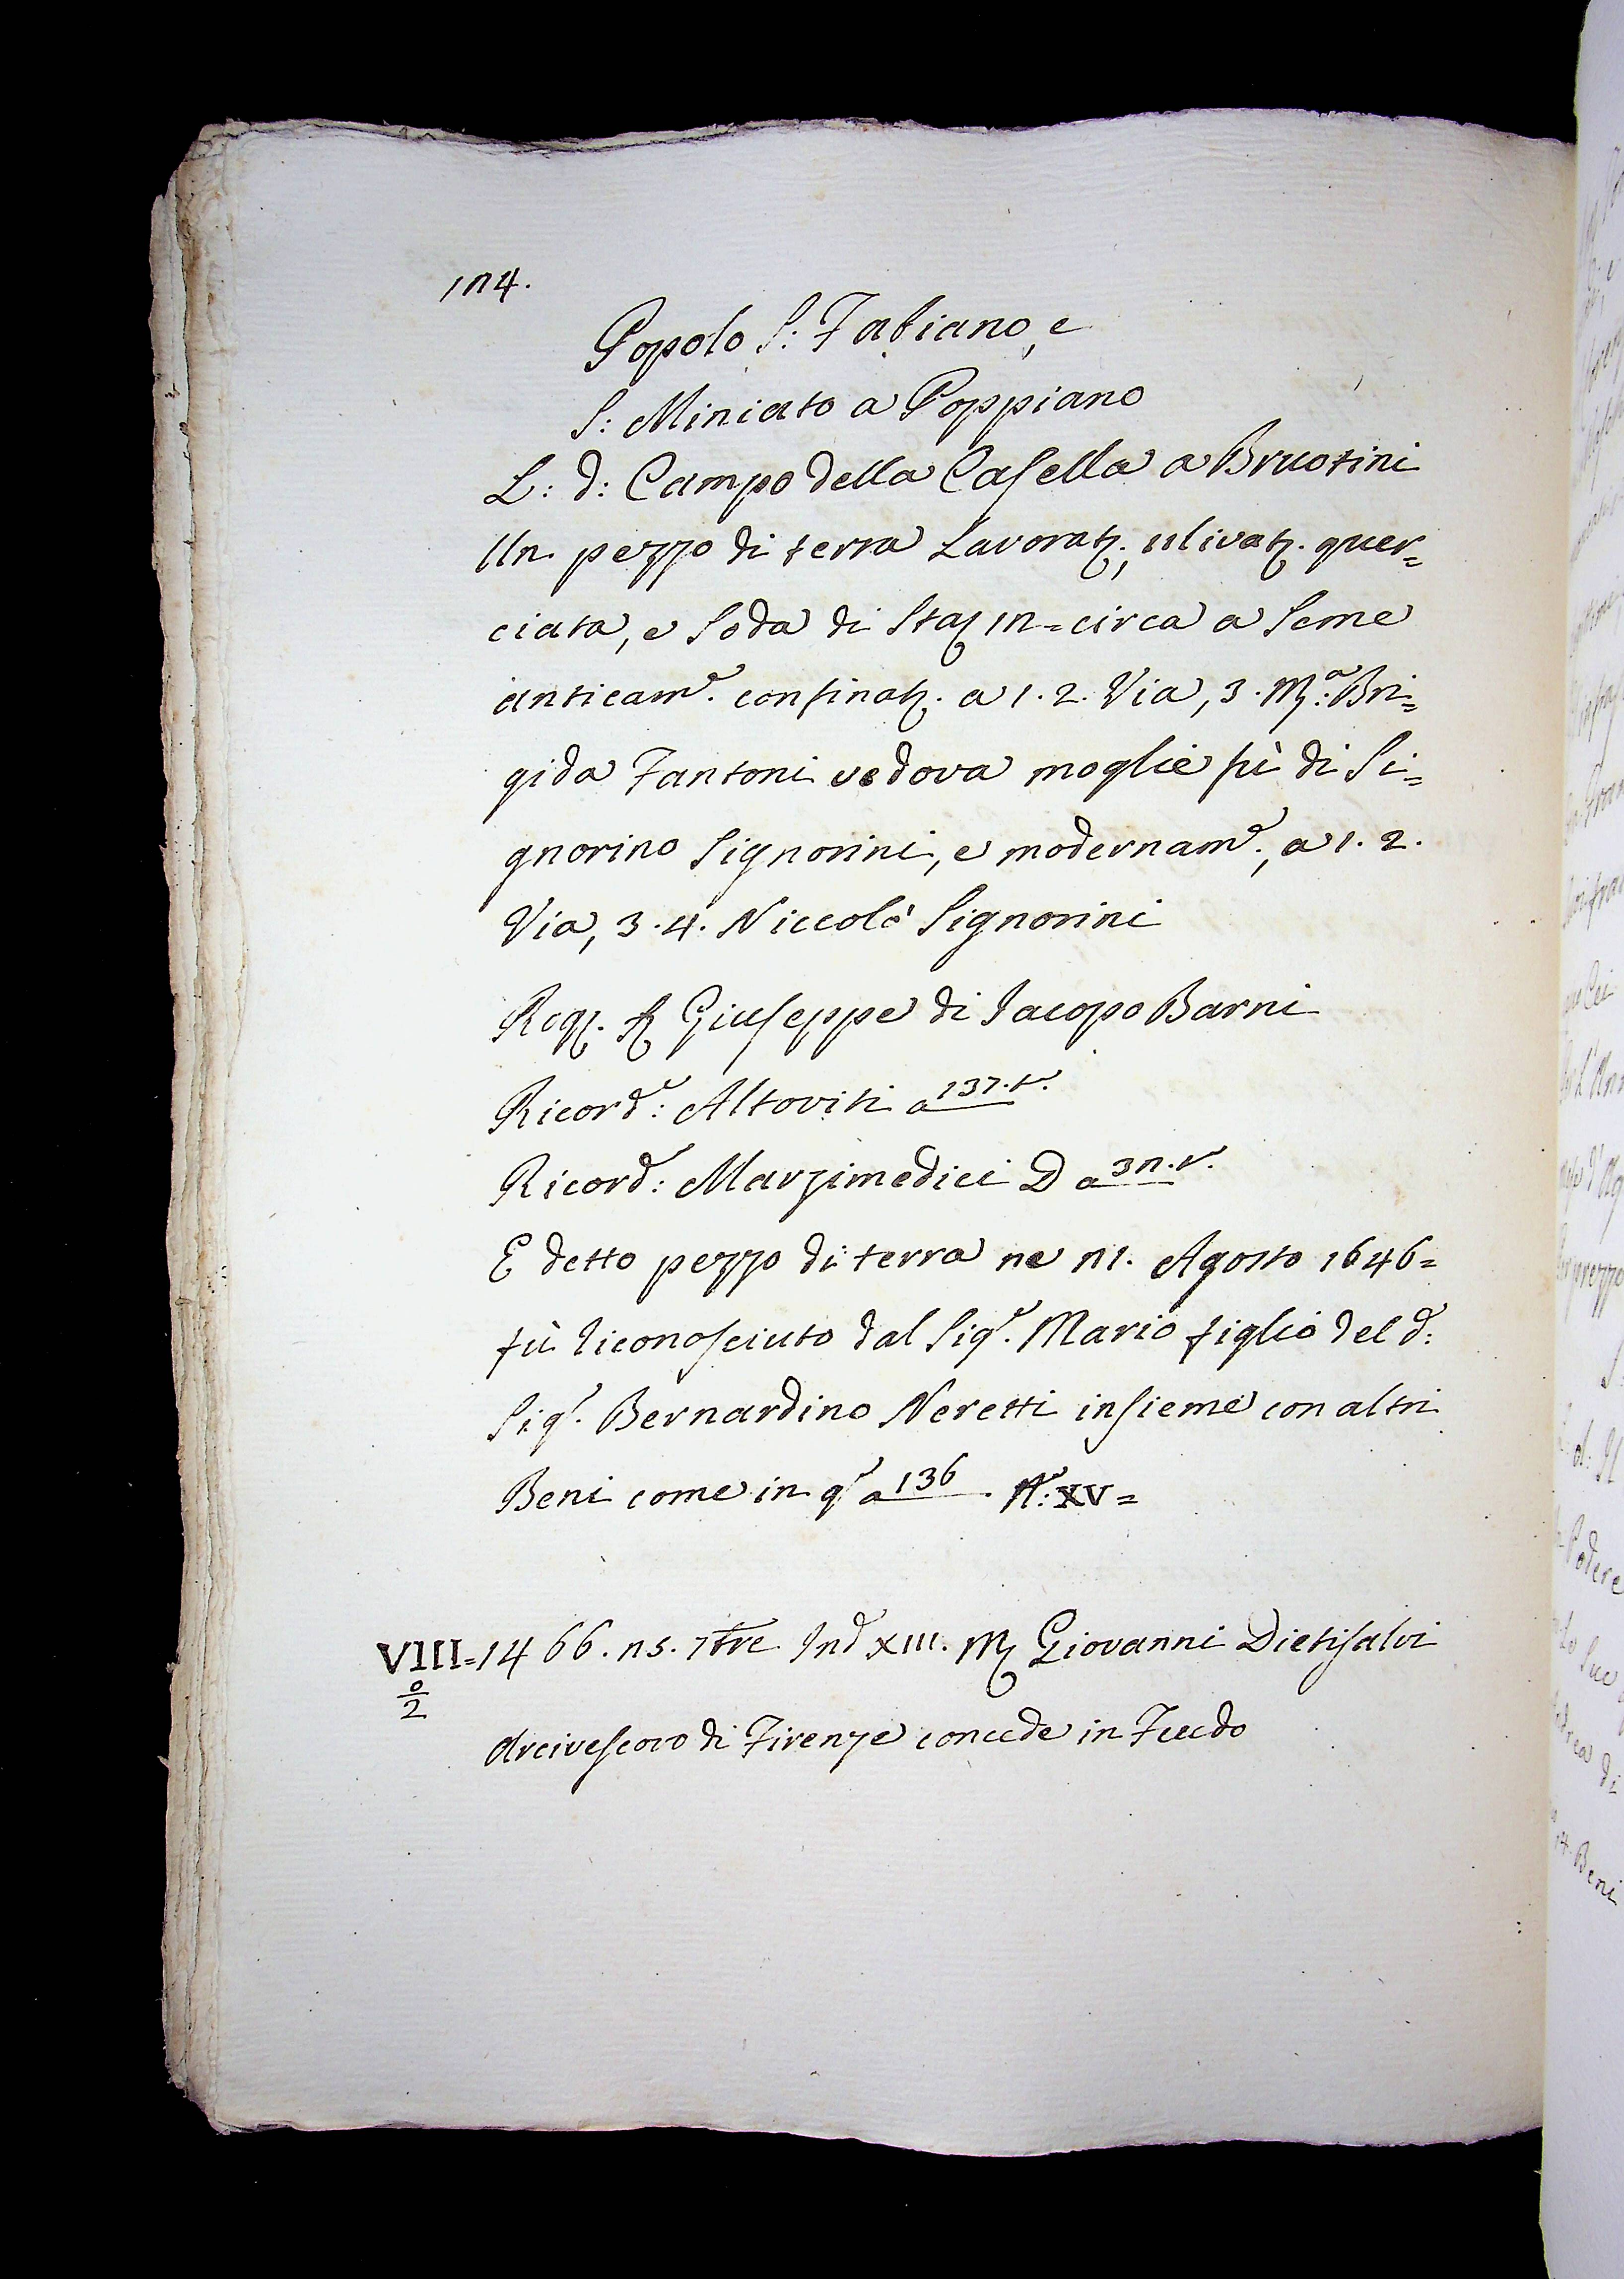 124.
Popolo S: Fabiano, e
S: Miniato a Poppiano
L: d: Campo della Casella a Bruotini
Un pezzo di terra Lavorat:, ulivat: quer=
ciata, e Soda di Sta: 12= circa a Seme
anticam.e confinat: a 1. 2. Via, 3. M:a Bri=
gida Fantoni vedova moglie fù di Si=
gnorino Signorini, e modernam.e, a 1. 2.
Via, 3. 4. Niccolò Signorini
Rog: Giuseppe di Jacopo Barni
Ricord: Altoviti a 137. t.
Ricord: Marzimedici D a 32. t.
E detto pezzo di terra ne 21. Agosto 1646=
fù riconosciuto dal Sig.r Mario figlio del d:
Sig.r Bernardino Neretti insieme con altri
Beni come in q.o a 136. N: XV=
VIII= 1466. 25. 7bre Ind XIII. M: Giovanni Dietisalvi
0/2
Arcivescovo di Firenze concede in Feudo